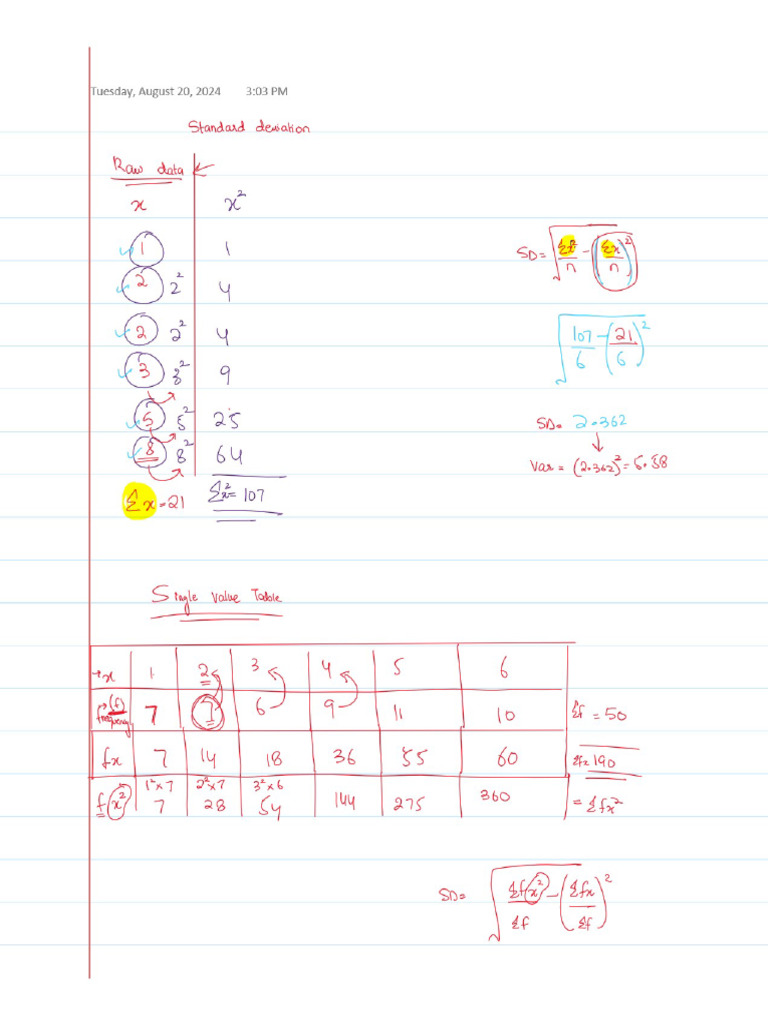 Tuesday, August 20, 2024 3:03 PM
Standard deviation
Raw data
x x²
1 1
2 2² 4
2 2² 4
3 3² 9
5 5² 25
8 8² 64
Σx = 21 Σx² = 107
SD = √(Σx²/n - (Σx/n)²)
√(107/6 - (21/6)²)
SD = 2.362
Var = (2.362)² = 5.58
Single Value Table
x 1 2 3 4 5 6
(f) frequency 7 7 6 9 11 10 Σf = 50
fx 7 14 18 36 55 60 Σfx 190
1²×7 2²×7 3²×6
f(x²) 7 28 54 144 275 360 = Σfx²
SD = √(Σf(x²)/Σf - (Σfx/Σf)²)